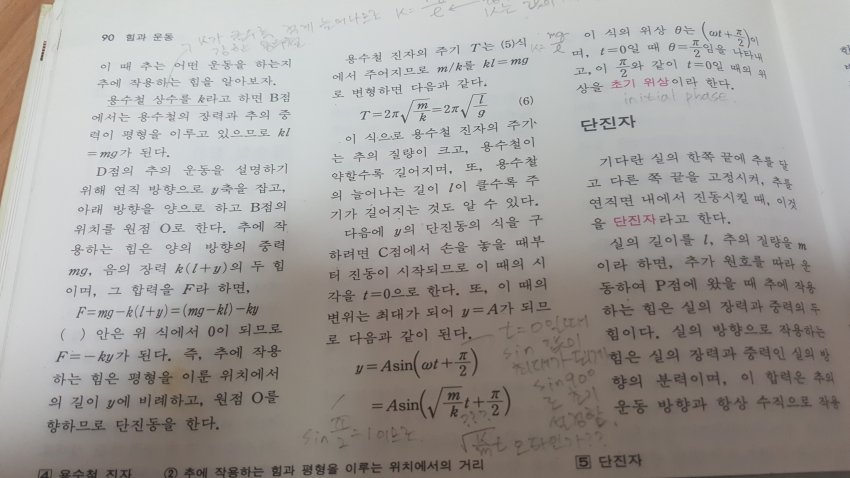 90 힘과 운동
이 때 추는 어떤 운동을 하는지
추에 작용하는 힘을 알아보자.
용수철 상수를 k라고 하면 B점
에서는 용수철의 장력과 추의 중
력이 평형을 이루고 있으므로 kl
=mg가 된다.
D점의 추의 운동을 설명하기
위해 연직 방향으로 y축을 잡고,
아래 방향을 양으로 하고 B점의
위치를 원점 O로 한다. 추에 작
용하는 힘은 양의 방향의 중력
mg, 음의 장력 k(l+y)의 두 힘
이며, 그 합력을 F라 하면,
F=mg-k(l+y)=(mg-kl)-ky
( ) 안은 위 식에서 0이 되므로
F=-ky가 된다. 즉, 추에 작용
하는 힘은 평형을 이룬 위치에서
의 길이 y에 비례하고, 원점 O를
향하므로 단진동을 한다.
sin π/2 = 1 이므로
4 용수철 진자 ② 추에 작용하는 힘과 평형을 이루는 위치에서의 거리
용수철 진자의 주기 T는 (5)식
에서 주어지므로 m/k를 kl=mg
로 변형하면 다음과 같다.
T=2π√(m/k)=2π√(l/g) (6)
이 식으로 용수철 진자의 주기
는 추의 질량이 크고, 용수철이
약할수록 길어지며, 또, 용수철
의 늘어나는 길이 l이 클수록 주
기가 길어지는 것도 알 수 있다.
다음에 y의 단진동의 식을 구
하려면 C점에서 손을 놓을 때부
터 진동이 시작되므로 이 때의 시
각을 t=0으로 한다. 또, 이 때의
변위는 최대가 되어 y=A가 되므
로 다음과 같이 된다.
y=Asin(ωt+π/2)
=Asin(√(m/k)t+π/2)
t=0일때
sin 값이
최대가 되게
sin90°
로 초기
설정함
???
√(k/m)t 오타인가??
mg/l
이 식의 위상 θ는 (ωt+π/2)이
며, t=0일 때 θ=π/2임을 나타내
고, 이 π/2와 같이 t=0일 때의 위
상을 초기 위상이라 한다.
initial phase
단진자
기다란 실의 한쪽 끝에 추를 달
고 다른 쪽 끝을 고정시켜, 추를
연직면 내에서 진동시킬 때, 이것
을 단진자라고 한다.
실의 길이를 l, 추의 질량을 m
이라 하면, 추가 원호를 따라 운
동하여 P점에 왔을 때 추에 작용
하는 힘은 실의 장력과 중력의 두
힘이다. 실의 방향으로 작용하는
힘은 실의 장력과 중력인 실의 방
향의 분력이며, 이 합력은 추의
운동 방향과 항상 수직으로 작용
5 단진자